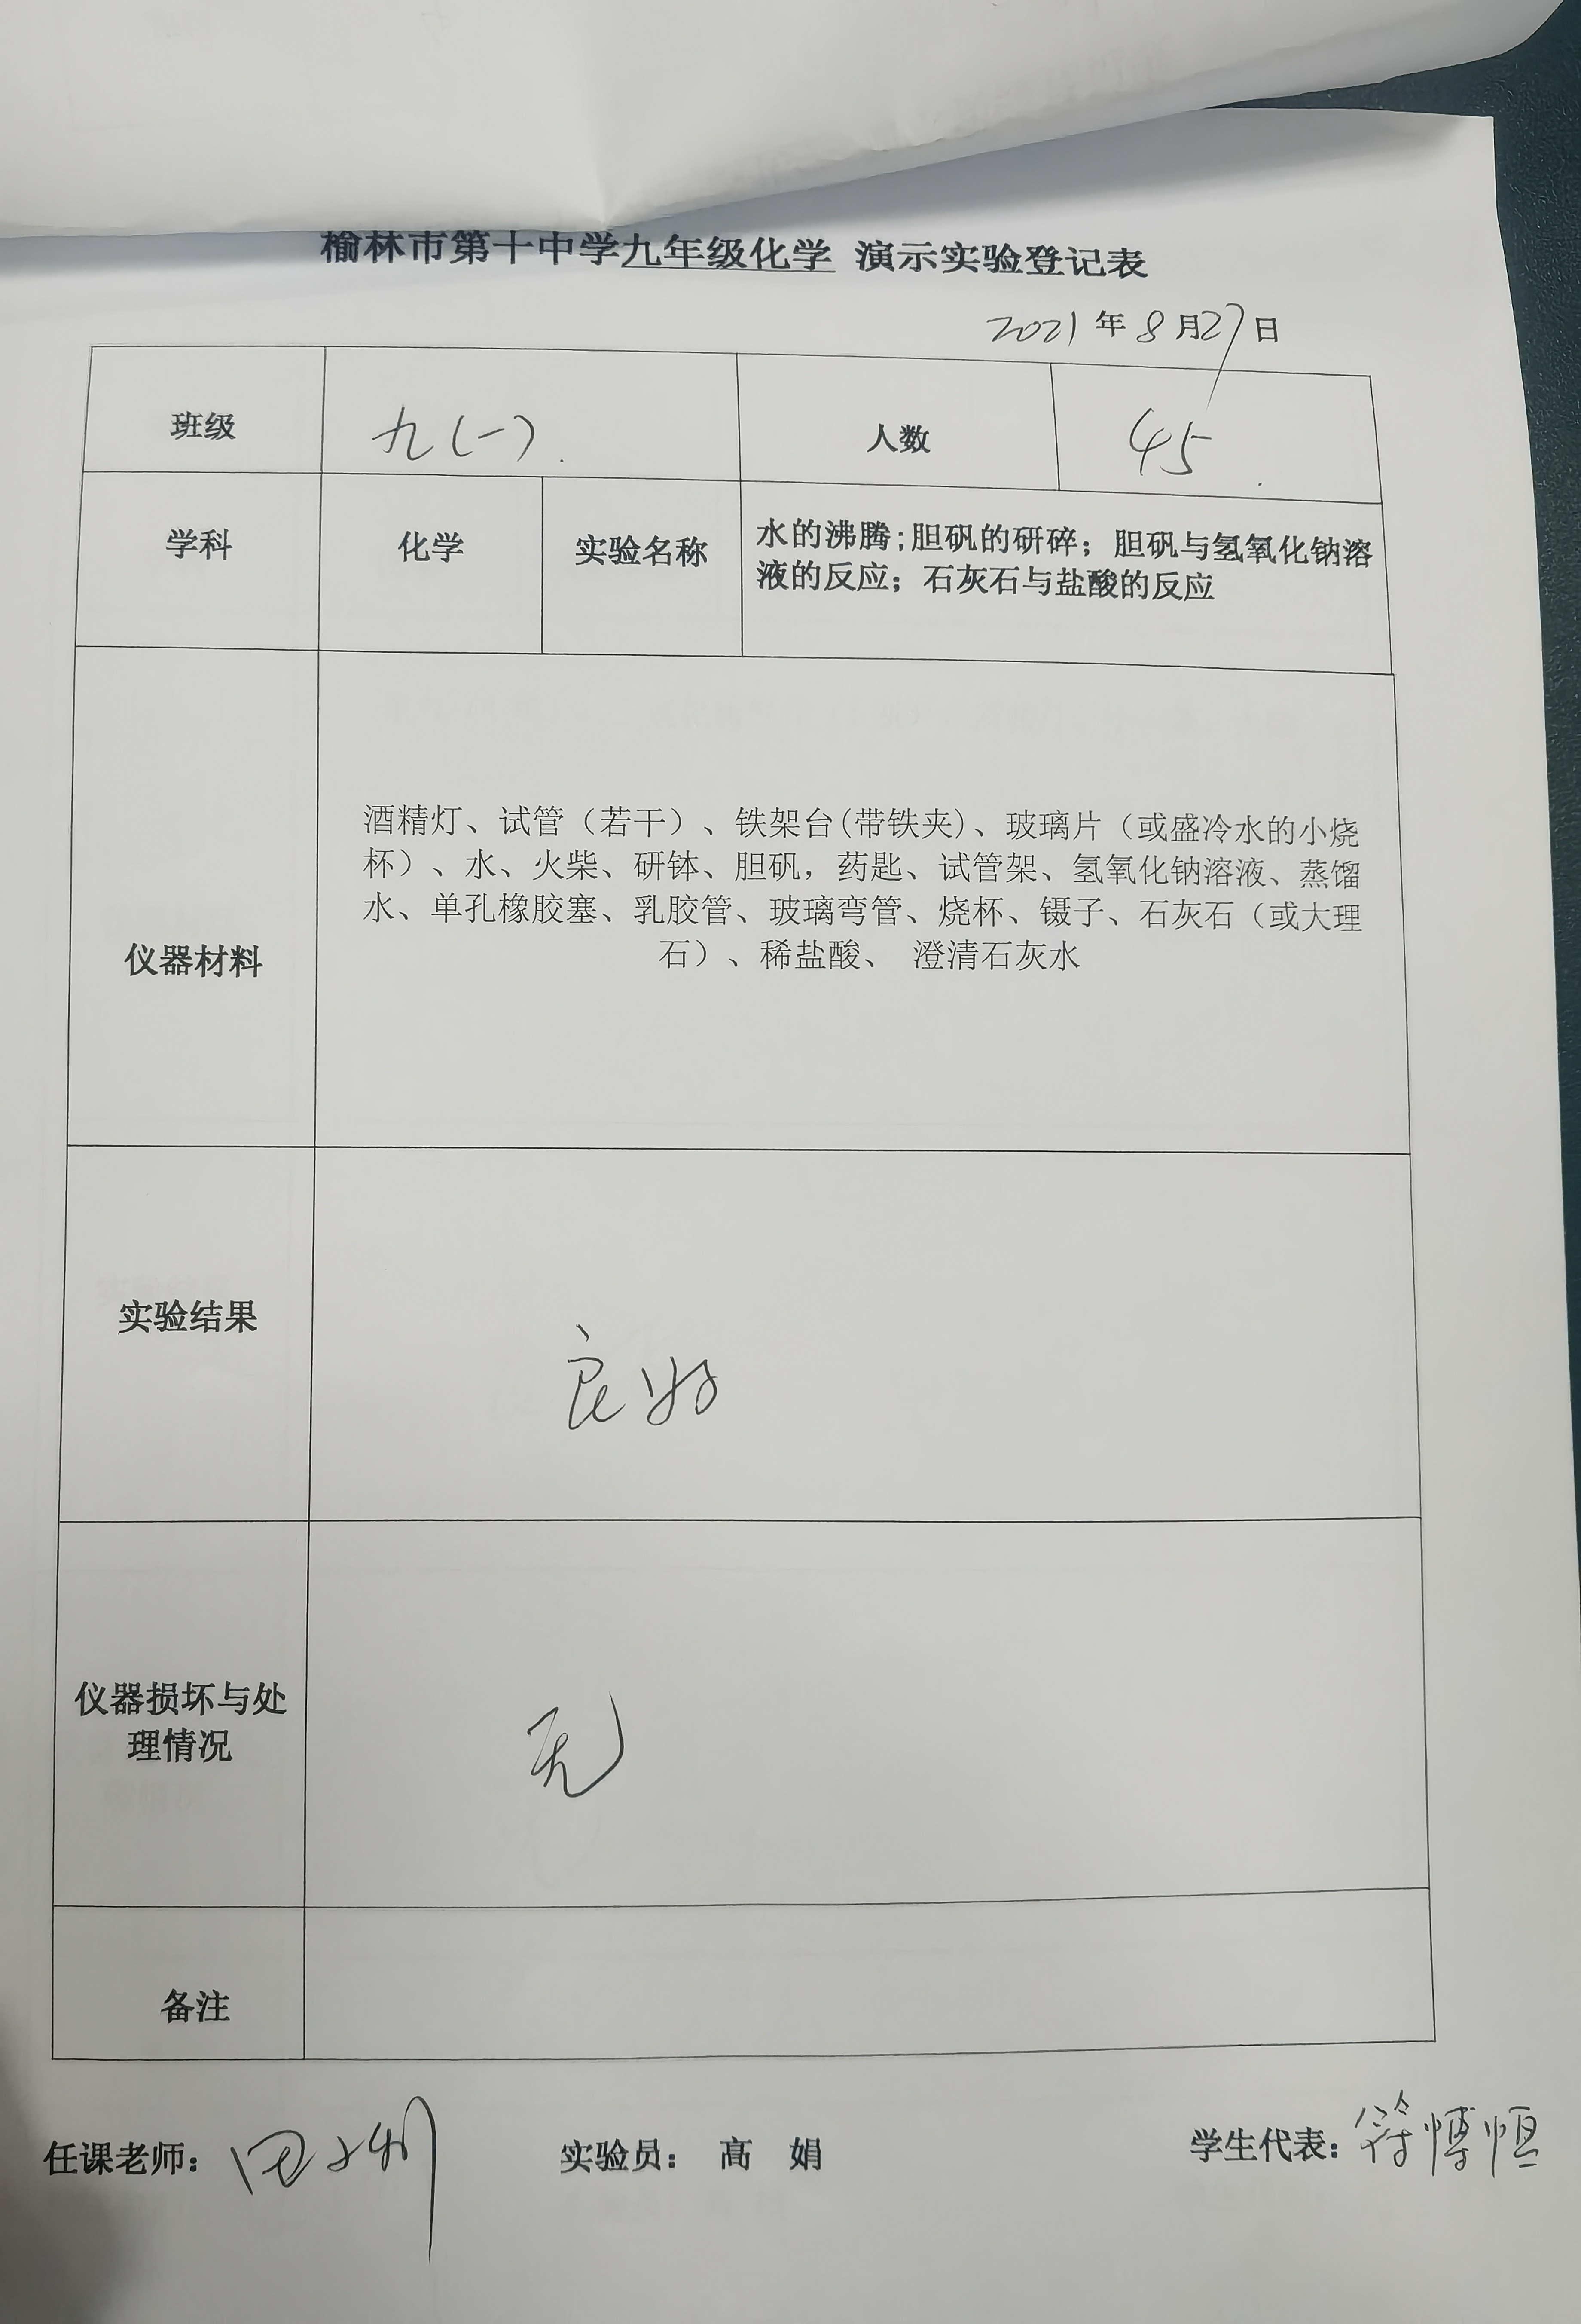 榆林市第十中学九年级化学 演示实验登记表
2021年8月27日
班级 九(一) 人数 45
学科 化学 实验名称 水的沸腾;胆矾的研碎；胆矾与氢氧化钠溶
液的反应；石灰石与盐酸的反应
仪器材料
酒精灯、试管（若干）、铁架台(带铁夹)、玻璃片（或盛冷水的小烧
杯）、水、火柴、研钵、胆矾，药匙、试管架、氢氧化钠溶液、蒸馏
水、单孔橡胶塞、乳胶管、玻璃弯管、烧杯、镊子、石灰石（或大理
石）、稀盐酸、 澄清石灰水
实验结果 良好
仪器损坏与处
理情况
无
备注
任课老师： 实验员： 高 娟 学生代表：符博恒